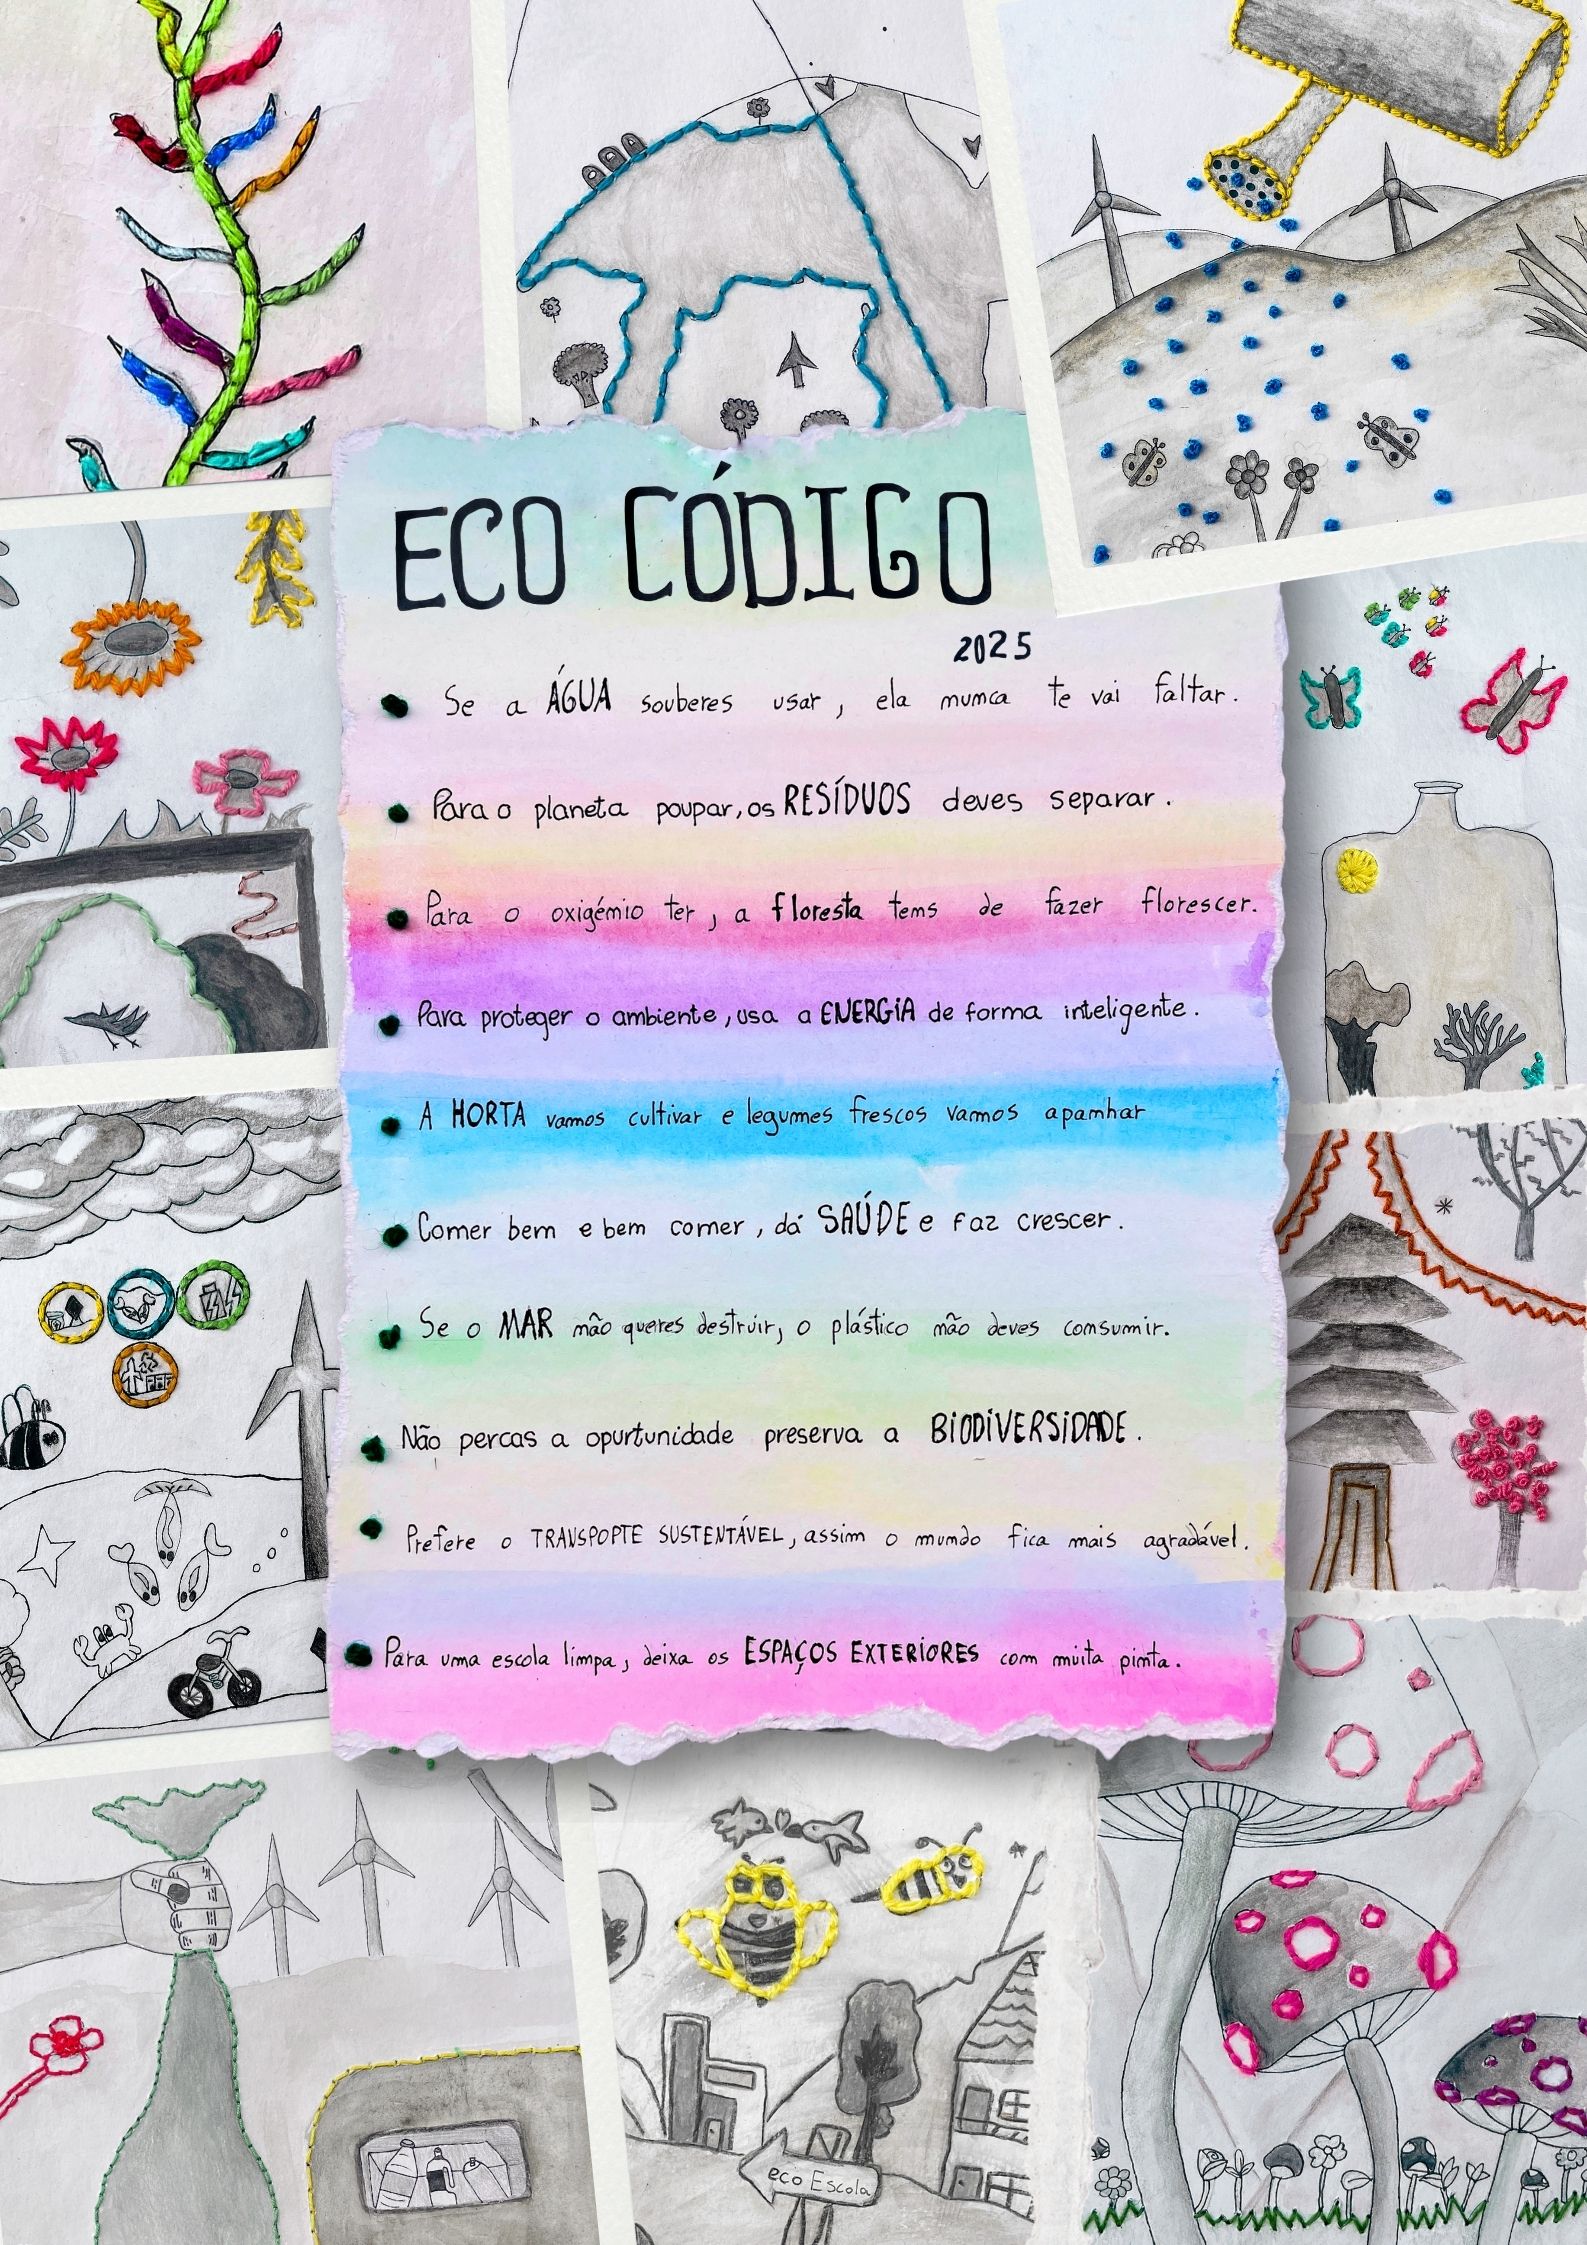 ECO CÓDIGO
2025
Se a ÁGUA souberes usar, ela nunca te vai faltar.
Para o planeta poupar, os RESÍDUOS deves separar.
Para o oxigénio ter, a floresta tens de fazer florescer.
Para proteger o ambiente, usa a ENERGIA de forma inteligente.
A HORTA vamos cultivar e legumes frescos vamos apanhar
Comer bem e bem comer, dá SAÚDE e faz crescer.
Se o MAR não queres destruir, o plástico não deves consumir.
Não percas a opurtunidade preserva a BIODIVERSIDADE.
Prefere o TRANSPOPTE SUSTENTÁVEL, assim o mundo fica mais agradável.
Para uma escola limpa, deixa os ESPAÇOS EXTERIORES com muita pinta.
eco Escola